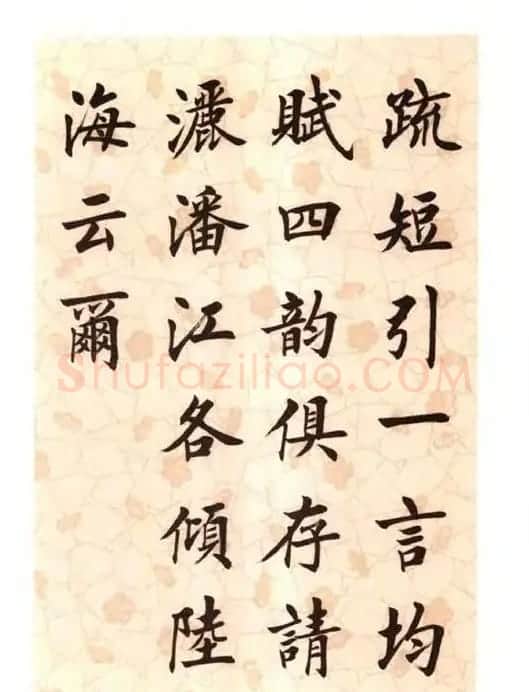 疏短引一言均
賦四韵俱存請
灑潘江各傾陸
海云爾
Shufaziliao.COM